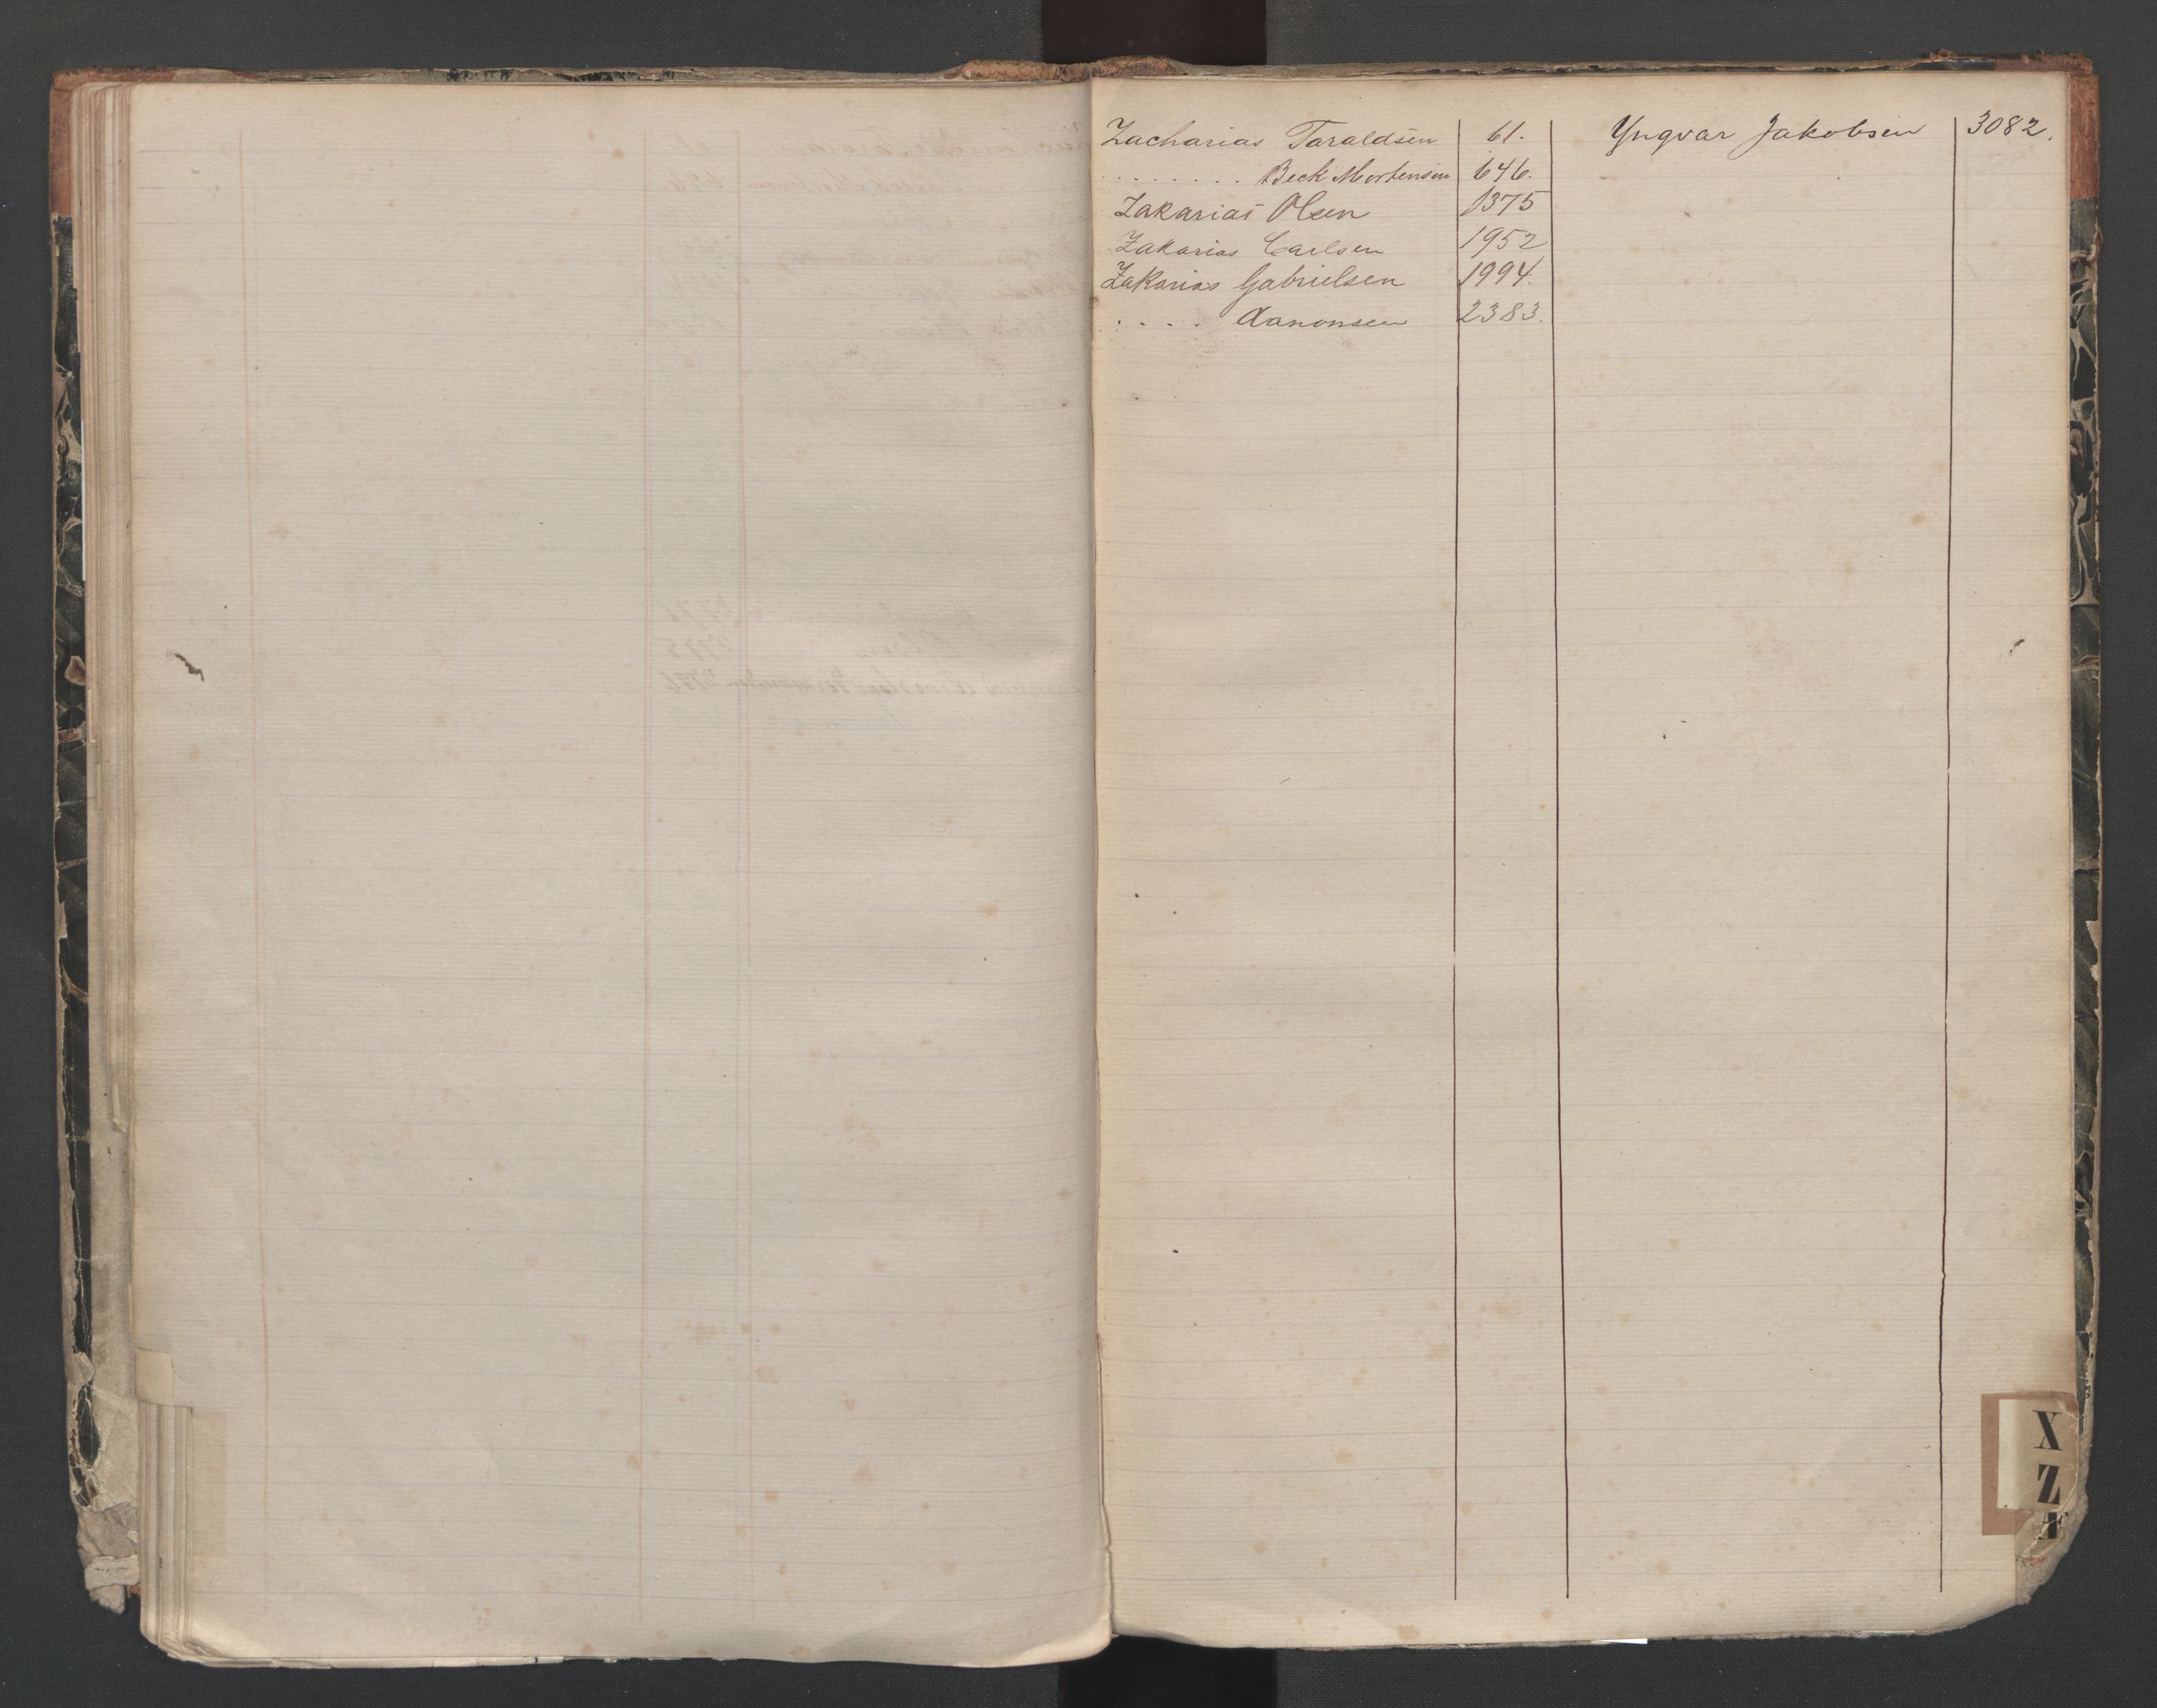 Zacharias Taraldsen 61.
. . . . . . . . Beck Mortensen 646.
Zakarias Olsen 1375
Zakarias Carlsen 1952
Zakarias Gabrielsen 1994.
. . . . Aanonsen 2383.
Yngvar Jakobsen 3082.
X
Z
Æ